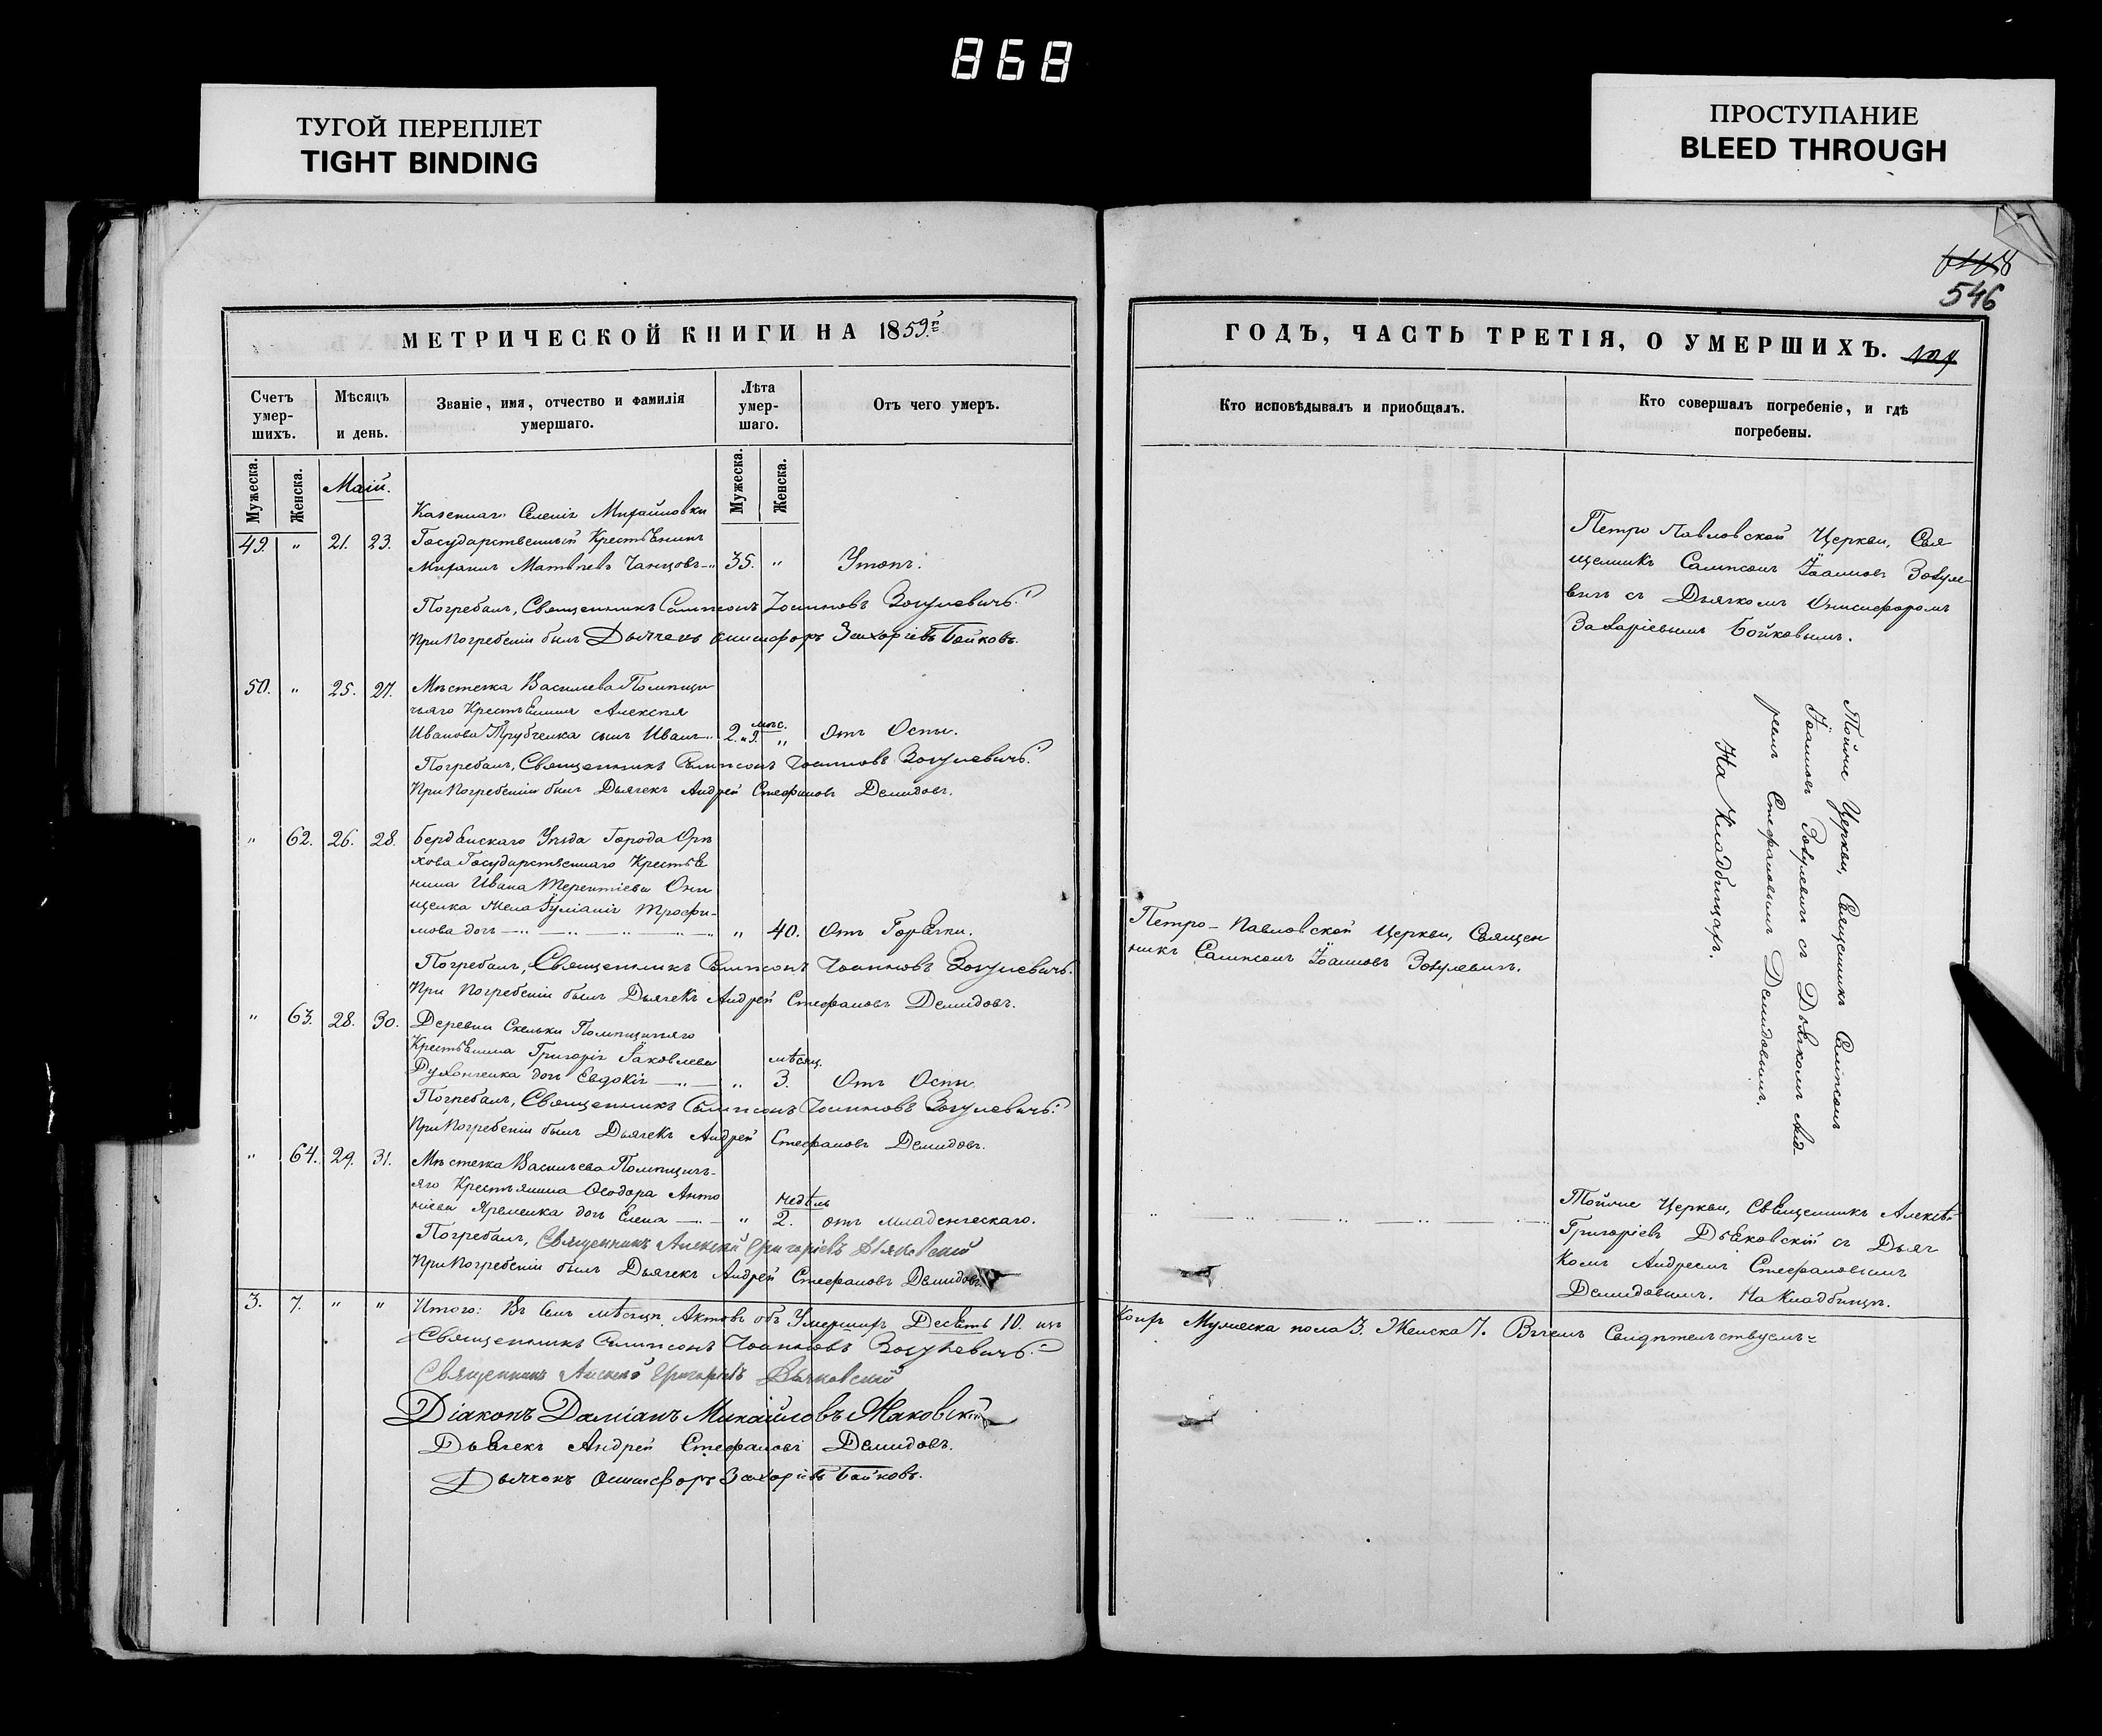 868
ТУГОЙ ПЕРЕПЛЕТ
TIGHT BINDING
ПРОСТУПАНИЕ
BLEED THROUGH
546
МЕТРИЧЕСКОЙ КНИГИ НА 1859й
Счетъ умер-шихъ.
Мѣсяцъ и день.
Званіе, имя, отчество и фамилія умершаго.
Лѣта умер-шаго.
Отъ чего умеръ.
Мужеска.
Женска.
Маій.
Мужеска.
Женска.
Казеннаго Селенія Михайловки
49. " 21. 23. Государственный Крестьянинъ
Михаилъ Матвѣевъ 35. " Утопъ.
Погребалъ, Священникъ Сампсонъ Іоанновъ Зосулевичъ.
При Погребеніи былъ Дьячекъ Онисифоръ Захаріевъ Бойковъ.
50. " 25. 27. Мѣстечка Василева Помѣщи
чьяго Крестьянина Алексѣя
мѣс.
Иванова Трубченка сынъ Иванъ 2. и 9. " Отъ Оспы.
Погребалъ, Священникъ Сампсонъ Іоанновъ Зосулевичъ.
При Погребеніи былъ Дьячекъ Андрей Стефановъ Демидовъ.
" 62. 26. 28. Бердянскаго Уѣзда Города Орѣ
хова Государственнаго Крестья
нина Ивана Терентіева Они
щенка жена Іуліанія Трофи-
мова дочь " 40. Отъ Горячки.
Погребалъ, Священникъ Сампсонъ Іоанновъ Зосулевичъ.
При Погребеніи былъ Дьячекъ Андрей Стефановъ Демидовъ.
" 63. 28. 30. Деревни Скельки Помѣщичьяго
Крестьянина Григорія Іаковлева
мѣсяц.
дочь Евдокія " 3. Отъ Оспы
Погребалъ, Священникъ Сампсонъ Іоанновъ Зосулевичъ.
При Погребеніи былъ Дьячекъ Андрей Стефановъ Демидовъ.
" 64. 29. 31. Мѣстечка Василева Помѣщичь-
яго Крестьянина Ѳеодора Анто
недѣль
ніева Яременка дочь Елена " 2. отъ младенческаго.
Погребалъ, Священникъ Алексѣй Григоріевъ Дьяковскій
При Погребеніи былъ Дьячекъ Андрей Стефановъ Демидовъ.
3. 7. " " Итого: Въ Семъ мѣсяцѣ Актовъ объ Умершихъ Десять 10. изъ
Священникъ Сампсонъ Іоанновъ Зосулевичъ.
Священникъ Алексѣй Григоріевъ Дьяковскій
Діаконъ Даміанъ Михайловъ Маковскій
Дьячекъ Андрей Стефановъ Демидовъ.
Дьячекъ Онисифоръ Захаріевъ Бойковъ.
ГОДЪ, ЧАСТЬ ТРЕТІЯ, О УМЕРШИХЪ.
Кто исповѣдывалъ и приобщалъ.
Кто совершалъ погребеніе, и гдѣ погребены.
Петро Павловской Церкви, Свя
щенникъ Сампсонъ Іоанновъ Зосуле-
вичъ съ Дьячкомъ Онисифоромъ
Захаріевымъ Бойковымъ.
Тойже Церкви, Священникъ Сампсонъ
Іоанновъ Зосулевичъ съ Дьячкомъ Анд-
реемъ Стефановымъ Демидовымъ.
На Кладбищахъ.
Петро-Павловской Церкви, Священ
никъ Сампсонъ Іоанновъ Зосулевичъ.
Тойже Церкви, Священникъ Алексѣй
Григоріевъ Дьяковскій съ Дьяч
комъ Андреемъ Стефановымъ
Демидовымъ. На Кладбищѣ.
коихъ Мужеска пола 3. Женска 7. Въ чемъ Свидѣтельствуемъ